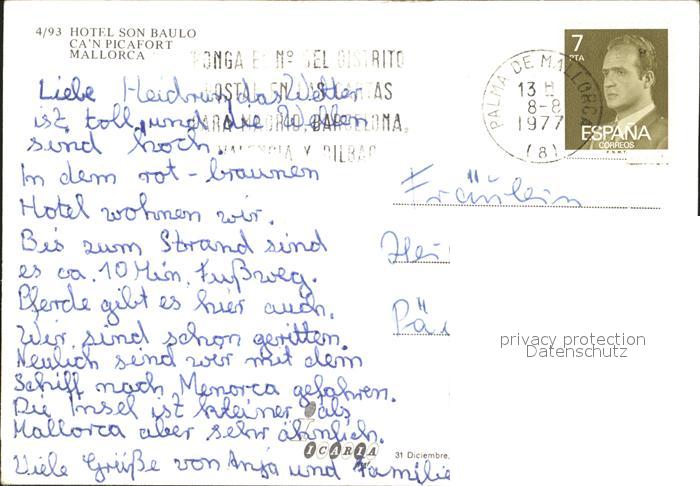 4/93 HOTEL SON BAULO
CA'N PICAFORT
MALLORCA
PONGA EL Nº DEL DISTRITO
POSTAL EN LAS CARTAS
PARA MADRID, BARCELONA,
VALENCIA Y BILBAO
PALMA DE MALLORCA
13 H
8-8
1977
(8)
7 PTA
ESPAÑA
CORREOS
F.N.M.T.
Liebe Heidrun, das Wetter
ist toll, und die Wellen
sind hoch.
In dem rot-braunen
Hotel wohnen wir.
Bis zum Strand sind
es ca. 10 Min. Fußweg.
Pferde gibt es hier auch.
Wir sind schon geritten.
Neulich sind wir mit dem
Schiff nach Menorca gefahren.
Die Insel ist kleiner als
Mallorca aber sehr ähnlich.
Viele Grüße von Anja und Familie
Fräulein
Hei
Pä
privacy protection
Datenschutz
ICARIA
31 Diciembre,